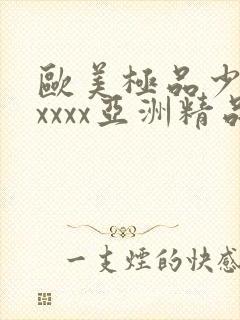 歐美極品少
xxxx亞洲精品
一支煙的快感